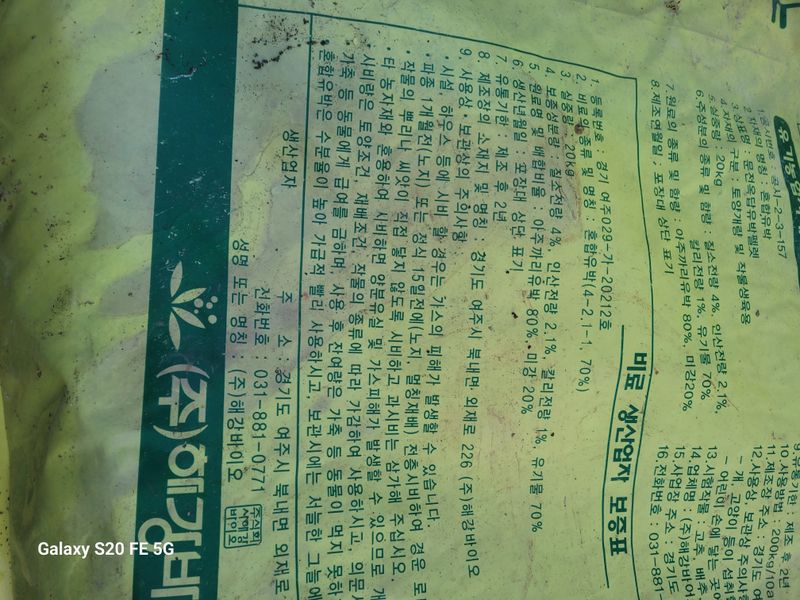 1. 공시번호 : 공시-2-3-157
2. 자재의 명칭 : 혼합유박
3. 상표명 :
4. 자재의 구분 : 토양개량 및 작물생육용
5. 실중량 : 20kg
6. 주성분의 종류 및 함량 : 질소전량 4%, 인산전량 2.1%,
칼리전량 1%, 유기물 70%
7. 원료의 종류 및 함량 : 아주까리유박 80%, 미강20%
8. 제조연월일 : 포장대 상단 표기
제조 후 2년
10. 사용방법 : 200kg/10a
11. 제조장 주소 : 경기도
12. 사용상 보관상 주의사항
- 개, 고양이 등이 섭취할
- 어린이 손에 닿는 곳에
13. 시험작물 : 고추 배추
14. 업체명 : (주)해강바이
15. 사업장 주소 : 경기도
16. 전화번호 : 031-881
비료 생산업자 보증표
1. 등록번호 : 경기 여주029-가-20212호
2. 비료의 종류 및 명칭 : 혼합유박(4-2.1-1, 70%)
3. 실중량 : 20kg
4. 보증성분량 : 질소전량 4%, 인산전량 2.1%, 칼리전량 1%, 유기물 70%
5. 원료명 및 배합비율 : 아주까리유박 80%, 미강 20%
6. 생산년월일 : 포장대 상단 표기
7. 유통기한 : 제조 후 2년
8. 제조장의 소재지 및 명칭 : 경기도 여주시 북내면 외재로 226 (주)해강바이오
9. 사용상·보관상의 주의사항
· 시설 하우스 등에 시비 할 경우는 가스의 피해가 발생할 수 있습니다.
· 파종 1개월전(노지) 또는 정식 15일전에(노지, 멀칭재배) 전층시비하여 경운 로
· 작물의 뿌리나 씨앗이 직접 닿지 않도록 시비하고 과시비는 삼가해 주십시오.
· 타 농자재와 혼용하여 시비하면 양분유실 및 가스피해가 발생할 수 있으므로 개
· 시비량은 토양조건, 재배조건 작물의 종류에 따라 가감하여 사용하시고, 의문사
가축 등 동물에게 급여를 금하며, 사용 후 잔여량은 가축 등 동물이 먹지 못하
혼합유박은 수분율이 높아 가급적 빨리 사용하시고 보관시에는 서늘한 그늘에
생산업자
주 소 : 경기도 여주시 북내면 외재로
전화번호 : 031-881-0771
성명 또는 명칭 : (주)해강바이오
주식회사해강바이오
(주)해강바
Galaxy S20 FE 5G